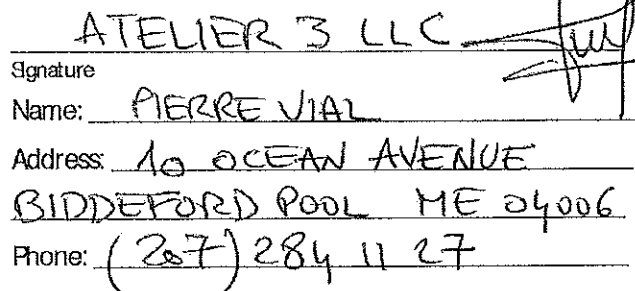 ATELIER 3 LLC
Signature
Name: PIERRE VIAL
Address: 10 OCEAN AVENUE
BIDDEFORD POOL ME 04006
Phone: (207) 284 11 27